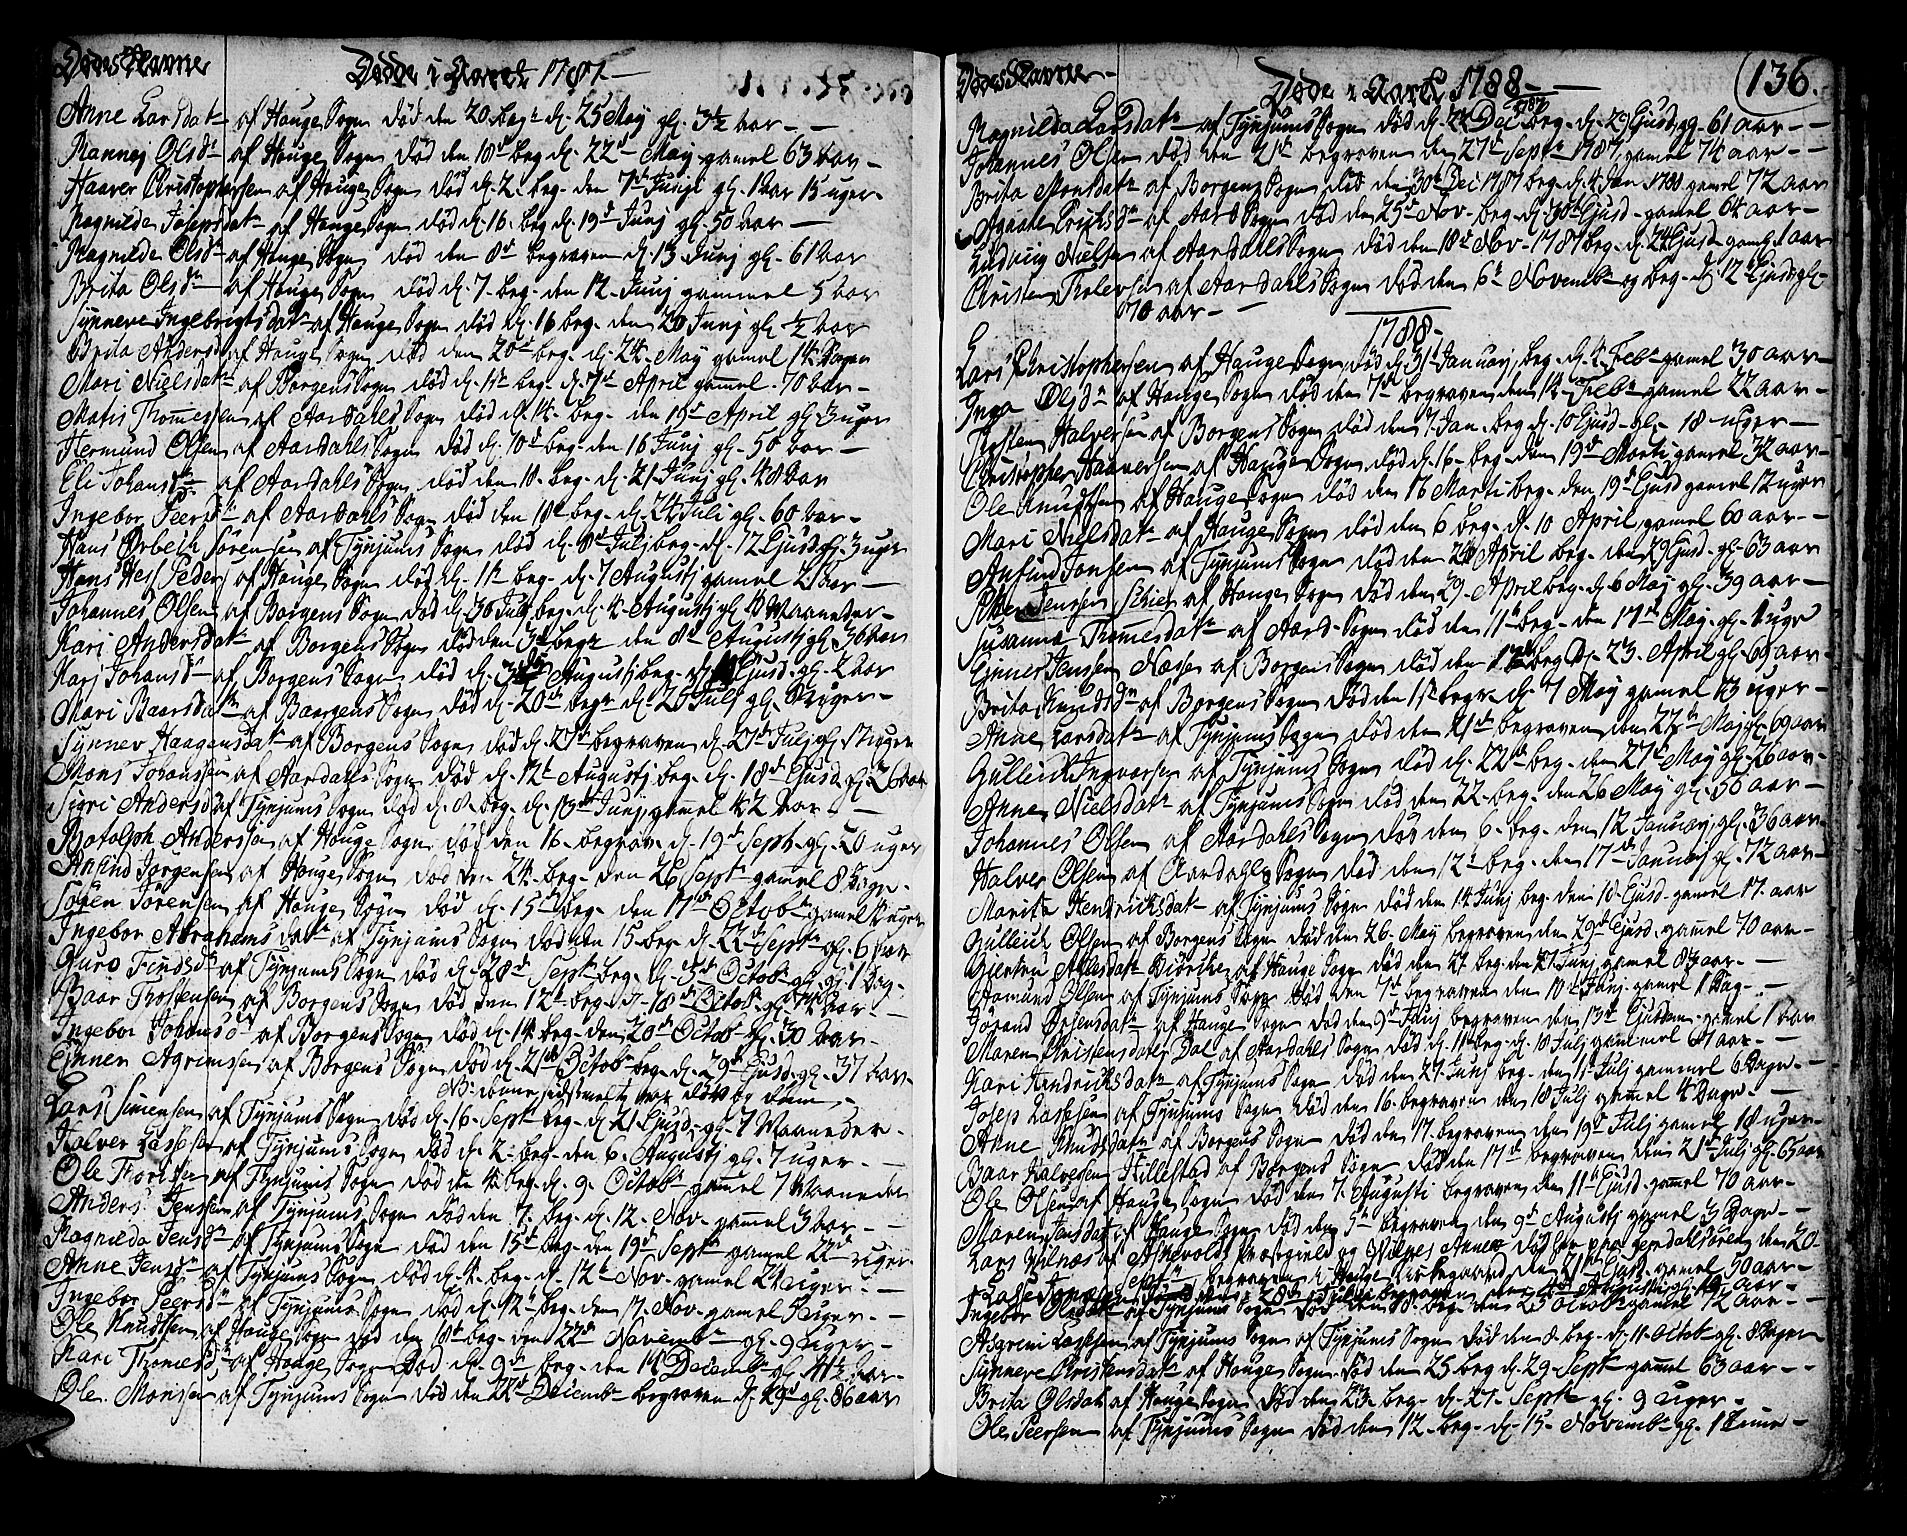 Dødes Navne Døde i Aaret 1787.
Anne Larsdatr af Hauge Sogn død den 20 begr d. 25 Maij gl. 3½ aar
Rannej Olsdr af Hauge Sogn død den 18 beg d. 22d Maij gamel 63 aar
Haaver Christophersen af Hauge Sogn død d. 2. beg. den 7d Junij gl. 1 aar 15 uger
Ragnilde Josepsdatr af Hauge Sogn død d. 16. beg d. 19d Junj gl. 50 aar
Ragnilde Olsdr af Hauge Sogn død den 8d begraven d. 13 Junj gl. 61 aar
Brita Olsdr af Hauge Sogn død d. 7. beg. den 12 Junj gammel 5 aar
Synneve Ingebrigtsdatr af Hauge Sogn død d. 16 beg. den 20 Junj gl. ½ aar
Brita Andersd af Hauge Sogn død den 20d beg. d. 24. Maij gamel 14 Dage
Mari Nielsdatr af Borgens Sogn død d. beg. d. 7d April gamel 70 aar
Matis Thommesen af Aardahls Sogn død d. beg. den April gl. 3 uger
Hermund Olsen af Aardahls Sogn død d. 10d beg. den 16 Junj gl. 50 aar
Eli Johansdr af Aardahls Sogn død den 18. beg. d. 21 Junj gl. 48 aar
Ingebor Peersdr af Aardahls Sogn død den 18d beg. d. 24 Juli gl. 60 aar
Hans Ørbech Sørensen af Tynjums Sogn død d. 8d Julj beg. d. 12 Ejusd gl. 3 uger
Hans Hess Peder af Hauge Sogn død d. beg. d. 7 Augustj gamel aar
Johannes Olsen af Borgens Sogn død d. 30 Julj beg. d. 4. Augustj gl. Maaneder
Kari Andersdatr af Borgens Sogn død den begr den 8d Augustj gl. 36 aar
Kari Johansdr af Borgens Sogn død d. Augustj beg. Ejusd. gl. 2 aar
Mari Baarsdatr af Baargens Sogn død d. 20d begr d. 25 Julj gl. uger
Synnev Haagensdatr af Borgens Sogn død d. begraven d. Julj gl. uger
Mons Johanssen af Aardahls Sogn død d. 12t Augustj beg. d. 18d Ejusd gl. aar
Sigri Andersdr af Tynjums Sogn død d. 8. beg. d. Junj gamel 42 aar
Botolph Anderssen af Hauge Sogn død den 16. begrav. d. 19d Septr gl. 20 uger
Anfind Jørgensen af Hauge Sogn død den 24. beg. den 26 Septr gamel 8 Dage
Søren Sørensen af Hauge Sogn død d. 15d beg. den 17d Octobr gamel uger
Ingebor Abrahamsdatr af Tynjums Sogn død den 15. beg. d. 22d Septr gl. 6 aar
Guro Findsdr af Tynjums Sogn død d. 28d Septr beg. d. Octobr gl. 1 Dag
Baar Thostensen af Borgens Sogn død den 12t beg. d. 18d Octob gl. 74 aar
Ingebor Johansdr af Borgens Sogn død d. 14 beg. den 20d Octobr gl. 30 aar
Einner Agrimsen af Borgens Sogn død d. Octobr beg. d. 29d Ejusd. gl. 37 aar
NB denne sidstmelte var døv og dum
Lars Simensen af Tynjums Sogn død d. 16. Septr beg. d. 21 Ejusd. gl. 7 Maaneder
Halver Lassesen af Tynjums Sogn død d. 2. beg. den 6. Augustj gl. 7 uger
Ole Thorsen af Tynjums Sogn død den 4. beg. d. 9. Octobr gamel 7 Maaneder
Anders Jenssen af Tynjums Sogn død den 7. beg. d. 12. Nov. gamel 3 aar
Ragnilda Jensdr af Tynjums Sogn død den 15d beg. den 19d Septr gamel 22 uger
Anne Jensdr af Tynjums Sogn død den 4. beg. d. 12t Nov. gamel 24 uger
Ingebor Peersdr af Tynjums Sogn død d. 12t beg. den 17. Nov. gamel uger
Ole Knudsen af Hauge Sogn død den 18d beg. den 22d Novembr gl. 9 uger
Kari Thomesdr af Hauge Sogn død d. 9d beg. den 14 Decembr gl. aar
Ole Monsen af Tynjums Sogn død den 22d Decembr begraven d. 29d gl. 86 aar
Dødes Navne Døde i Aaret 1788 136.
Ragnilda Larsdatr af Tynjums Sogn død d. Decb 1787 beg. d. 29 Ejusd gl. 61 aar
Johannes Olsen død den 21d begraven den 27d Septr 1787 gamel 74 aar
Brita Monsdatr af Borgens Sogn død den 30t Dec 1787 beg. d. 4 Jan 1788 gamel 72 aar
Agaate Erichsdr af Aard Sogn død den 25d Nov. beg. d. 30d Ejusd. gamel 64 aar
Ludvig Nielsen af Aardahls Sogn død den 18d Nov. 1787 beg. d. 24 Ejusd gamel 1 aar
Christen Tholevsen af Aardahls Sogn død den 6t Novembr og beg. d. 12 Ejusd gl.
70 aar
1788
Lars Christophersen af Hauge Sogn død d. 31 Januarj beg. d. 4. Febr gamel 30 aar
Inga Olsdr af Hauge Sogn død den 7d begraven den 14. Febr gamel 22 aar
Thosten Halversen af Borgens Sogn død den 7. Jan. beg d. 10 Ejusd. gl. 18 uger
Christopher Haaversen af Hauge Sogn død d. 16. beg. den 19d Marti gamel 32 aar
Ole Knudsen af Hauge Sogn død den 16 Marti beg. den 19d Ejusd gamel 12 uger
Mari Nielsdatr af Hauge Sogn død den 6 beg. d. 10 April gamel 60 aar
Anfind Jonsen af Tynjums Sogn død den 24 April beg. den 29 Ejusd. gl. 63 aar
Peder Jenssen af Hauge Sogn død den 29. April beg. d. 6 Maj gl. 39 aar
Susanna Thomesdatr af Aard Sogn død den 11t beg. den 17d Maj. gl. uger
Einner Jenssen Næsse af Borgens Sogn død den beg d. 23. April gl. 65 aar
Brita Knudsdr af Borgens Sogn død den begr. d. 7 Maj gamel 13 uger
Anne Larsdatr af Tynjums Sogn død den 21d begraven den 27t Maj gl. 69 aar
Gullich Ingvarsen af Tynjums Sogn død d. 22d beg. den 27d Maj gl. 26 aar
Anne Nielsdatr af Tynjums Sogn død den 22. beg. den 26 Maj gl. 50 aar
Johannes Olsen af Aardahls Sogn død den 6. beg. den 12 Januarj gl. 36 aar
Halver Olsen af Aardahls Sogn død den 12t beg. den 17d Januarj gl. 72 aar
Marita Hendricksdatr af Tynjums Sogn død den 14 Junj beg. den 18 Ejusd. gamel 17. aar
Gullich Olsen af Borgens Sogn død den 26. Maj begraven den 29d Ejusd. gamel 70 aar
Giertru Atlesdatr Biørche af Hauge Sogn død den 24 beg. den 27 Junj gamel aar
Asmund Olsen af Tynjums Sogn død den 7d begraven den 10d Junj. gamel 1 Dag
Jørand Ørsensdatr af Hauge Sogn død den 9d Junj begraven den 13d Ejusdem gamel 1 aar
Maren Christensdatr Dal af Aardahls Sogn død d. 11. beg. d. 18 Julj gammel 67 aar
Kari Hendricksdatr af Tynjums Sogn død den 27 Junj beg. den Julj gammel 6 Dage
Josep Lassesen af Tynjums Sogn død den 16. begraven den 18 Julj gamel 4 Dage
Anne Knudsdatr af Borgens Sogn død den 17. begraven den 19d Julj gamel 18 uger
Baar Halvorsen Hillestad af Borgens Sogn død den 17d begraven den 21d Julj gl. 65 aar
Ole Olsen af Hauge Sogn død den 7. Augusti begraven den 11t Ejusd. gamel 70 aar
Maren Jensdatr af Hauge Sogn død den 5t begraven den 9d Augustj gamel 3 Dage
Lars Vilnæs af Askevolds Præstegield og Vilnes Annex død paa Lerdalsøren den 20
Septr begraven i Hauge Kirkegaard den Ejusd. gamel 50 aar
Lasse
Ingebor Olsdatr af Tynjums Sogn død den 18. beg. den 23 Octobr gamel 72 aar
Asgrim Lassesen af Tynjums Sogn af Tynjums Sogn død den 8 beg. d. 11. Octob gl. 8 Dage
Synneve Christensdatr af Hauge Sogn død den 25 beg d. 29. Septr gamel 63 aar
Brita Olsdatr af Hauge Sogn død den 23. beg. d. 27. Septr gl. 9 uger
Ole Peersen af Tynjums Sogn død den 12. beg. d. 15. Novembr gl. 1